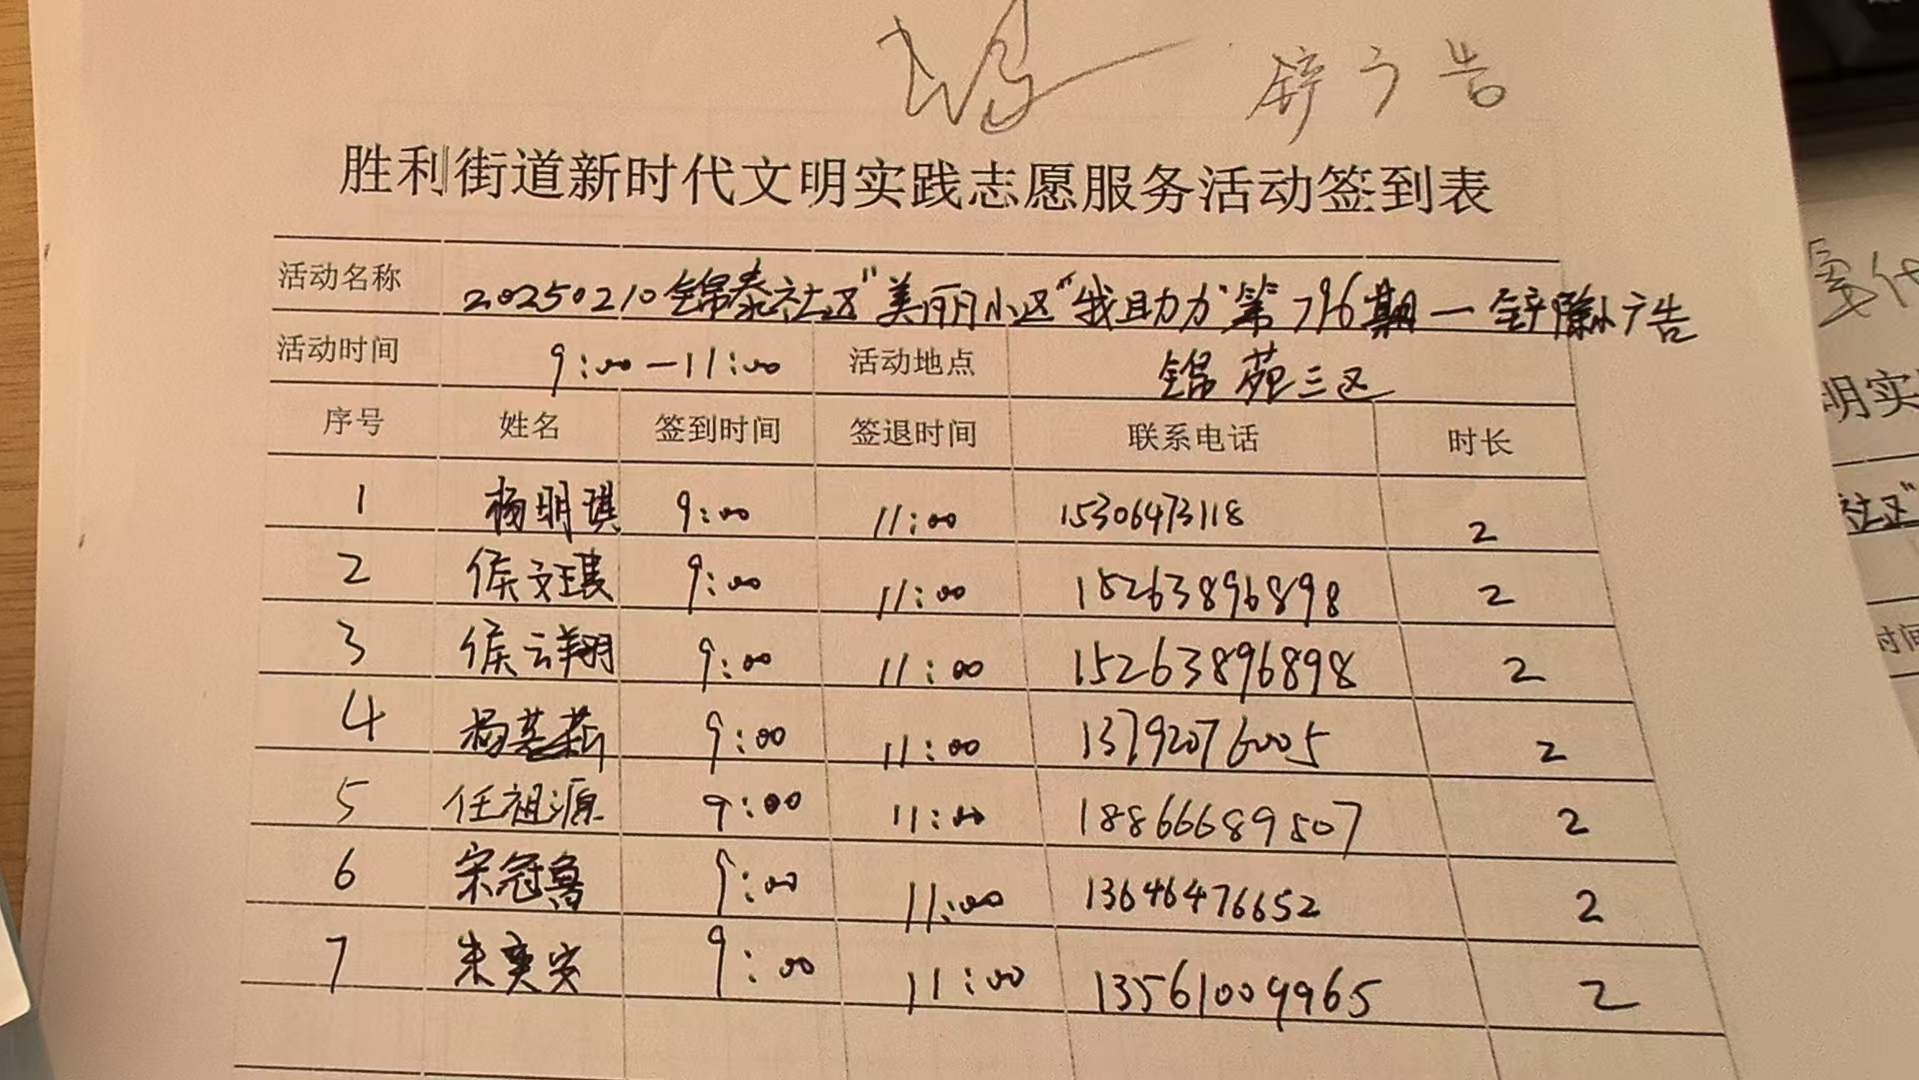 锌广告
胜利街道新时代文明实践志愿服务活动签到表
活动名称 20250210锦泰社区"美丽小区"我助力"第796期一锌除小广告
活动时间 9:00-11:00 活动地点 锦苑三区
序号 姓名 签到时间 签退时间 联系电话 时长
1 杨明琪 9:00 11:00 15306473118 2
2 侯文瑾 9:00 11:00 15263896898 2
3 侯云翔 9:00 11:00 15263896898 2
4 杨 9:00 11:00 13792076005 2
5 任祖源 9:00 11:00 18866689507 2
6 宋冠鲁 9:00 11:00 13646476652 2
7 朱奕安 9:00 11:00 13561009965 2
代
明实
社区"
时间